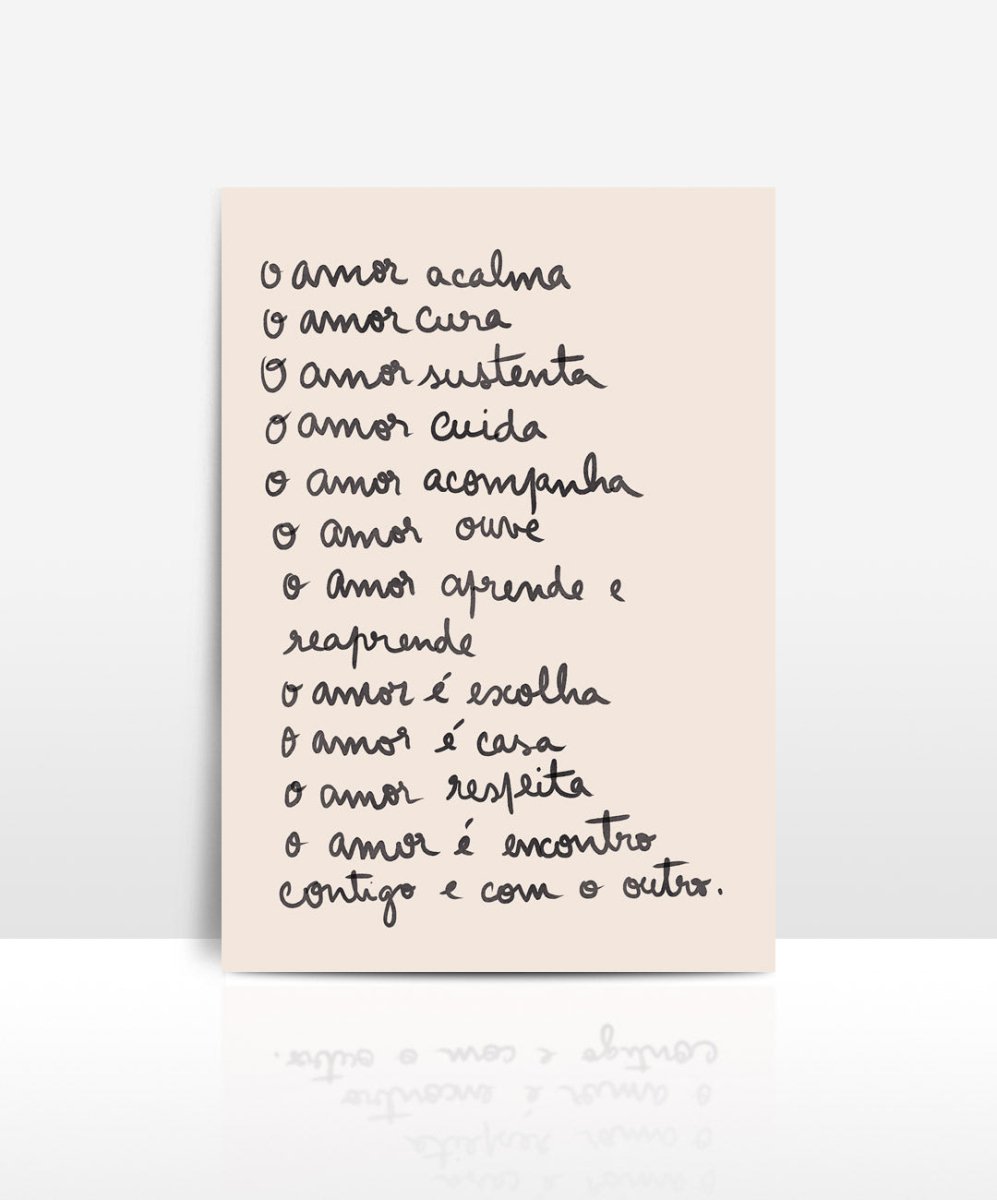 o amor acalma
o amor cura
O amor sustenta
o amor cuida
o amor acompanha
o amor ouve
o amor aprende e
reaprende
o amor é escolha
o amor é casa
o amor respeita
o amor é encontro
contigo e com o outro.